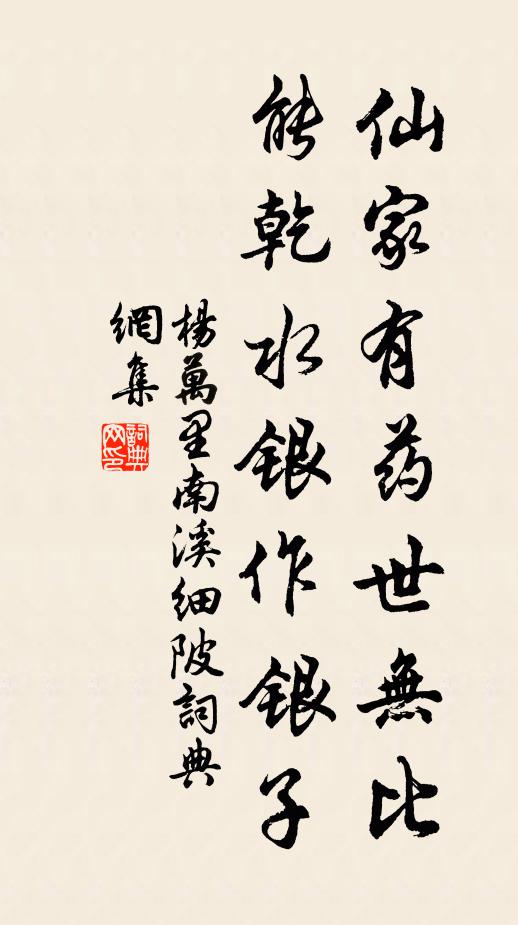 仙家有药世無比
能乾水銀作銀子
楊萬里南溪細陂詞典
網集
詞典網印